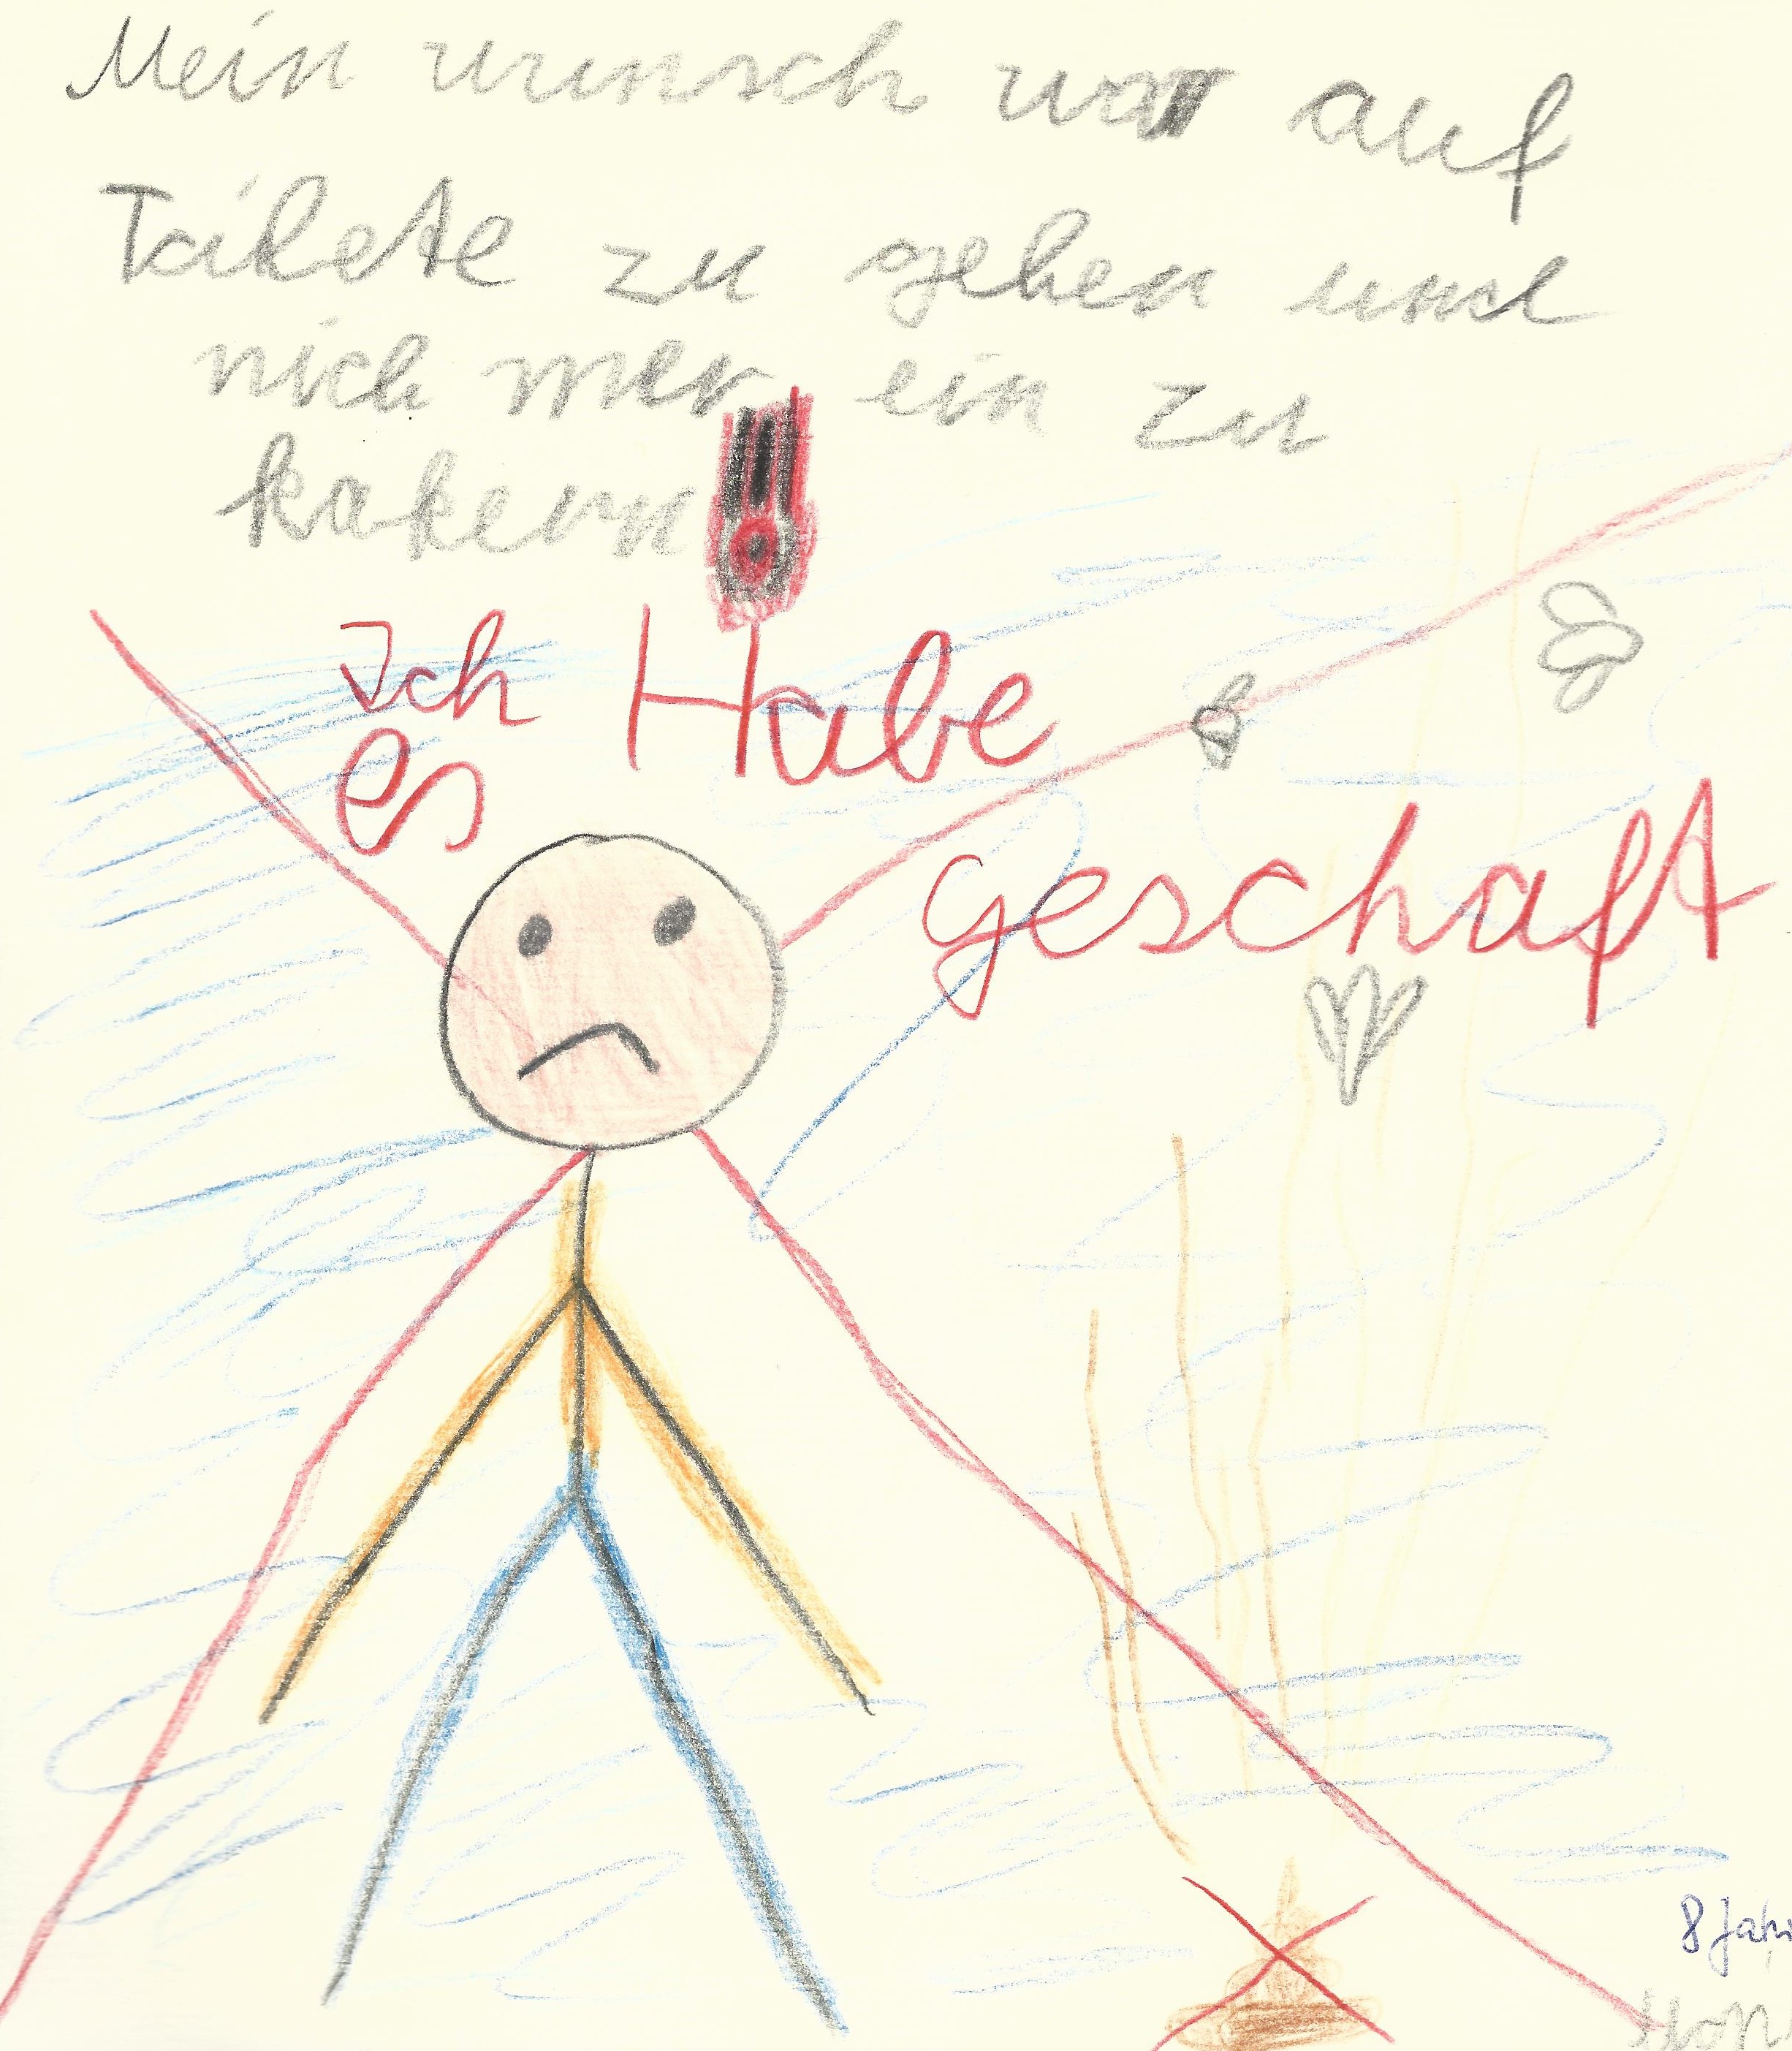 Mein wunsch war auf
Toilete zu gehen und
nich mer ein zu
kakern!
Ich Habe
es
geschaft
8 Jahr